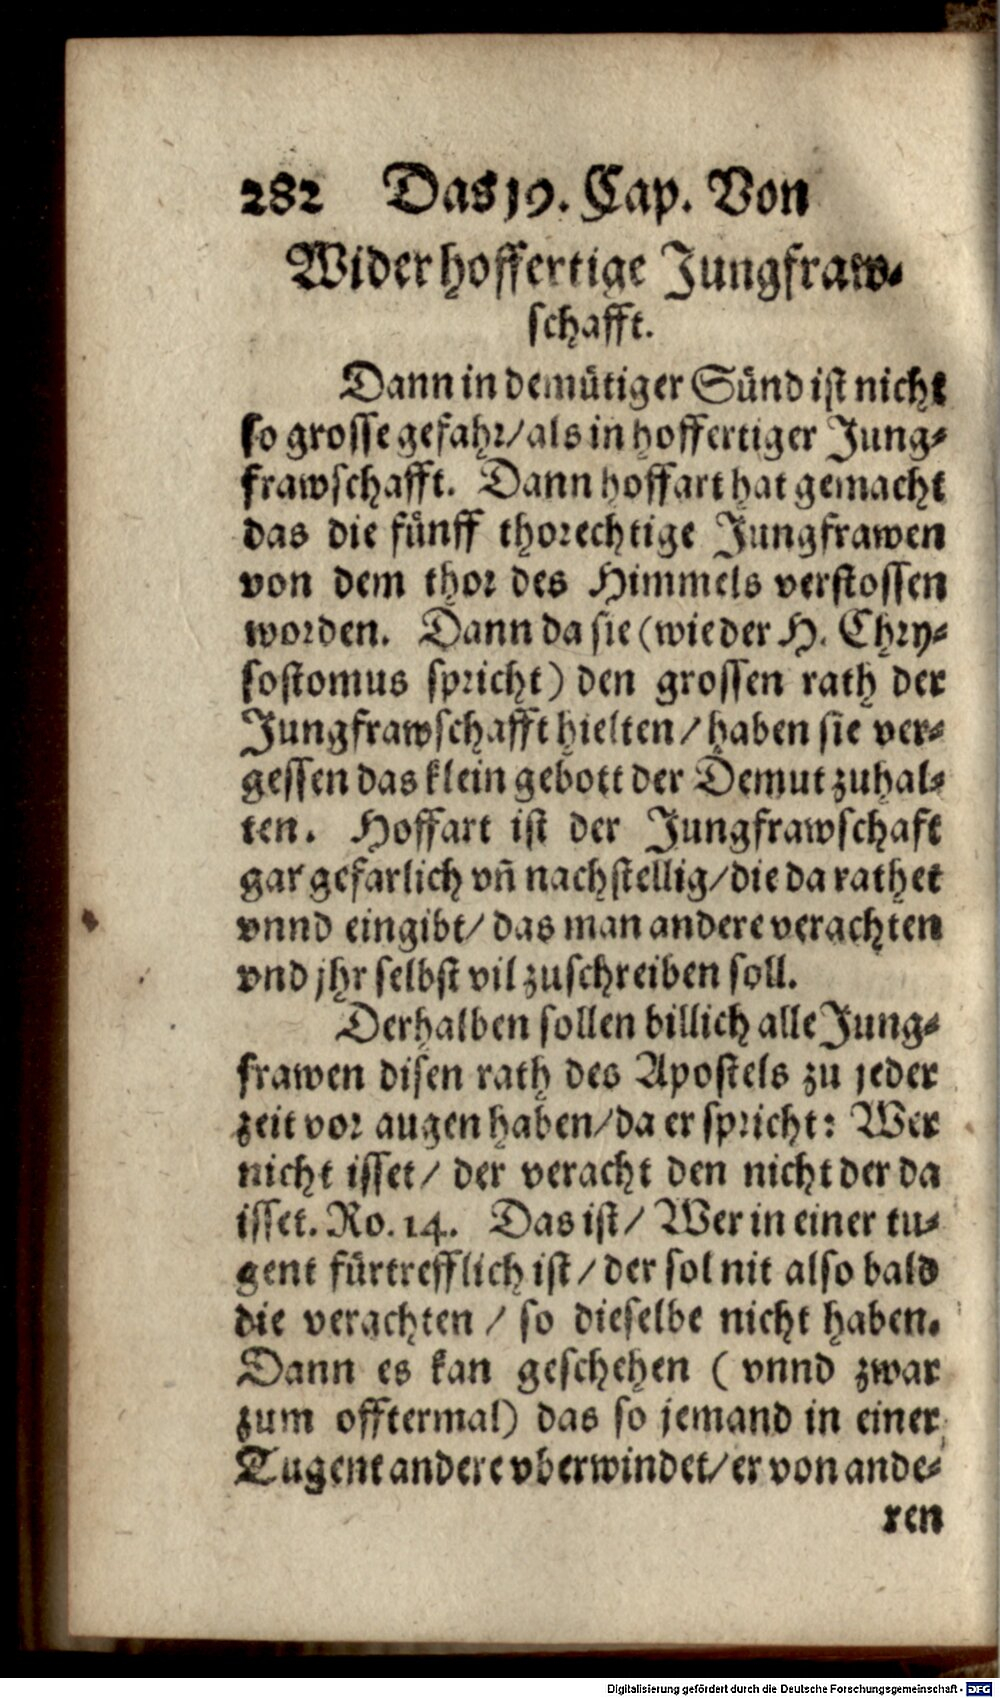 282 Das 19. Cap. Von
Wider hoffertige Jungfraw-
schafft.
Dann in demütiger Sünd ist nicht
so grosse gefahr/als in hoffertiger Jung-
frawschafft. Dann hoffart hat gemacht
das die fünff thorechtige Jungfrawen
von dem thor des Himmels verstossen
worden. Dann da sie (wie der H. Chry-
sostomus spricht) den grossen rath der
Jungfrawschafft hielten/haben sie ver-
gessen das klein gebott der Demut zuhal-
ten. Hoffart ist der Jungfrawschaft
gar gefarlich vñ nachstellig/die da rathet
vnnd eingibt/das man andere verachten
vnd jhr selbst vil zuschreiben soll.
Derhalben sollen billich alle Jung-
frawen disen rath des Apostels zu jeder
zeit vor augen haben/da er spricht: Wer
nicht isset/ der veracht den nicht der da
isset. Ro. 14. Das ist/ Wer in einer tu-
gent fürtrefflich ist/der sol nit also bald
die verachten / so dieselbe nicht haben.
Dann es kan geschehen ( vnnd zwar
zum offtermal) das so jemand in einer
Tugent andere vberwindet/er von ande-
ren
Digitalisierung gefördert durch die Deutsche Forschungsgemeinschaft - DFG